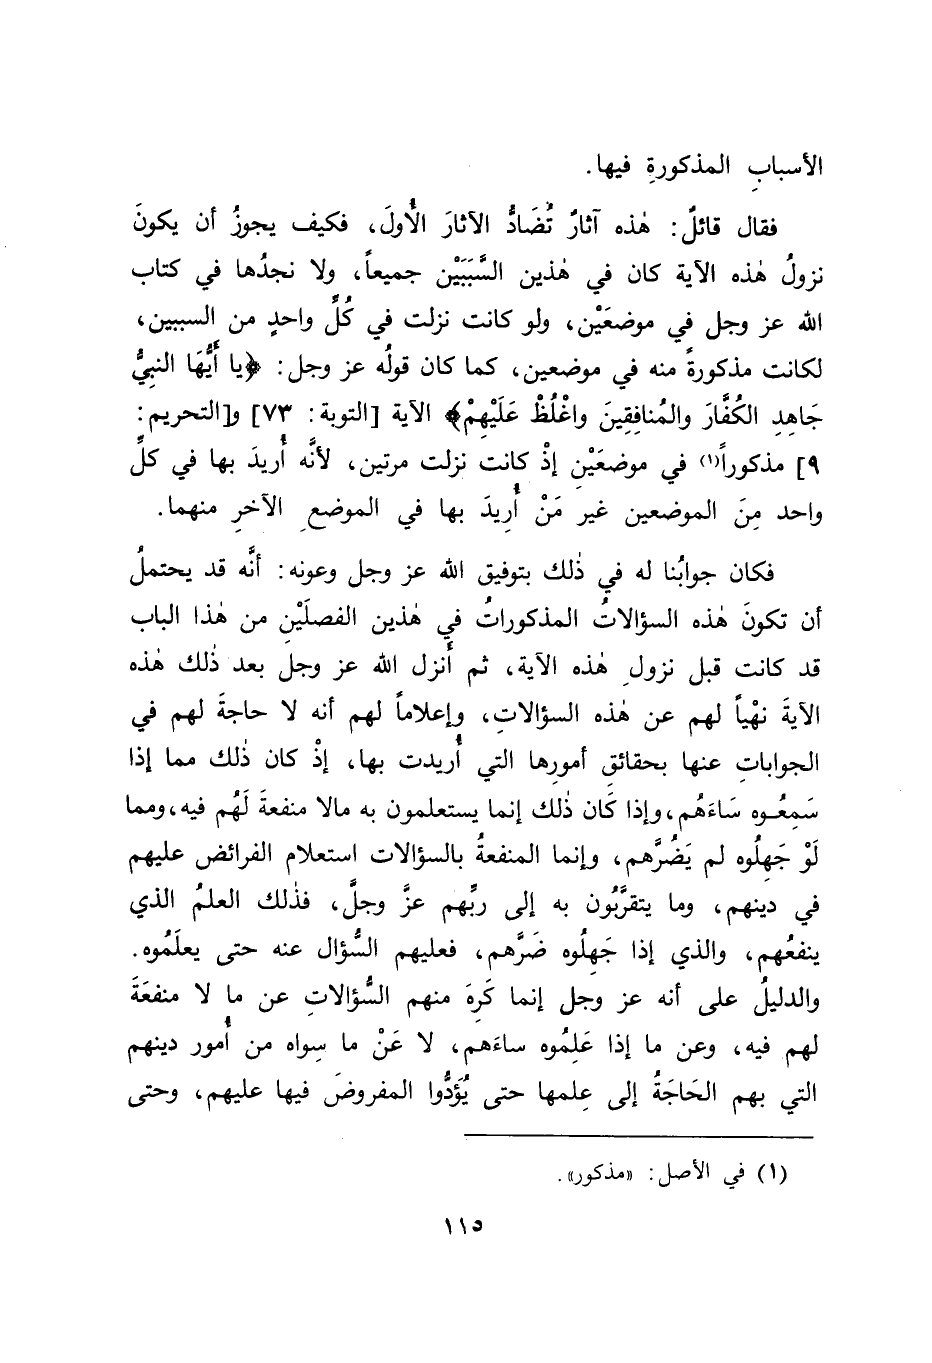 الأسبابِ المذكورةِ فيها.
فقال قائلٌ: هٰذه آثارٌ تُضَادُّ الآثارَ الْأُولَ، فكيف يجوزُ أن يكونَ
نزولُ هٰذه الآية كان في هٰذين السَّبَبَيْن جميعاً، ولا نجدُها في كتاب
الله عز وجل في موضعَيْن، ولو كانت نزلت في كُلِّ واحدٍ من السببين،
لكانت مذكورةً منه في موضعين، كما كان قولُه عز وجل: ﴿يا أَيُّهَا النبيُّ
جَاهِدِ الكُفَّارَ والمُنافِقِينَ واغْلُظْ عَلَيْهِمْ﴾ الآية [التوبة: ٧٣] و[التحريم:
٩] مذكوراً(١) في موضعَيْنِ إذْ كانت نزلت مرتين، لأنَّه أُريدَ بها في كلِّ
واحد مِنَ الموضعين غير مَنْ أُرِيدَ بها في الموضعِ الآخرِ منهما.
فكان جوابُنا له في ذٰلك بتوفيق الله عز وجل وعونه: أنَّه قد يحتملُ
أن تكونَ هٰذه السؤالاتُ المذكوراتُ في هٰذين الفصلَيْنِ من هٰذا الباب
قد كانت قبل نزولِ هٰذه الآية، ثم أَنزل الله عز وجلَ بعد ذٰلك هٰذه
الآيةَ نهْياً لهم عن هٰذه السؤالاتِ، وإعلاماً لهم أنه لا حاجةَ لهم في
الجواباتِ عنها بحقائقِ أمورها التي أُريدت بها، إذْ كان ذٰلك مما إذا
سَمِعُوه سَاءَهُم، وإذا كَان ذٰلك إنما يستعلمون به مالا منفعةَ لَهُم فيه، ومما
لَوْ جَهِلُوه لم يَضُرَّهم، وإنما المنفعةُ بالسؤالات استعلام الفرائض عليهم
في دينهم، وما يتقرَّبُون به إلى ربِّهم عزَّ وجلَّ، فذٰلك العلمُ الذي
ينفعُهم، والذي إذا جَهِلُوه ضَرَّهم، فعليهم السُّؤال عنه حتى يعلَمُوه.
والدليلُ على أنه عز وجل إنما كَرِهَ منهم السُّؤالاتِ عن ما لا منفعَةَ
لهم فيه، وعن ما إذا عَلِمُوه ساءَهم، لا عَنْ ما سِواه من أُمور دينهم
التي بهم الحَاجَةُ إلى عِلمها حتى يُؤَدُّوا المفروضَ فيها عليهم، وحتى
(١) في الأصل: «مذكور».
١١٥